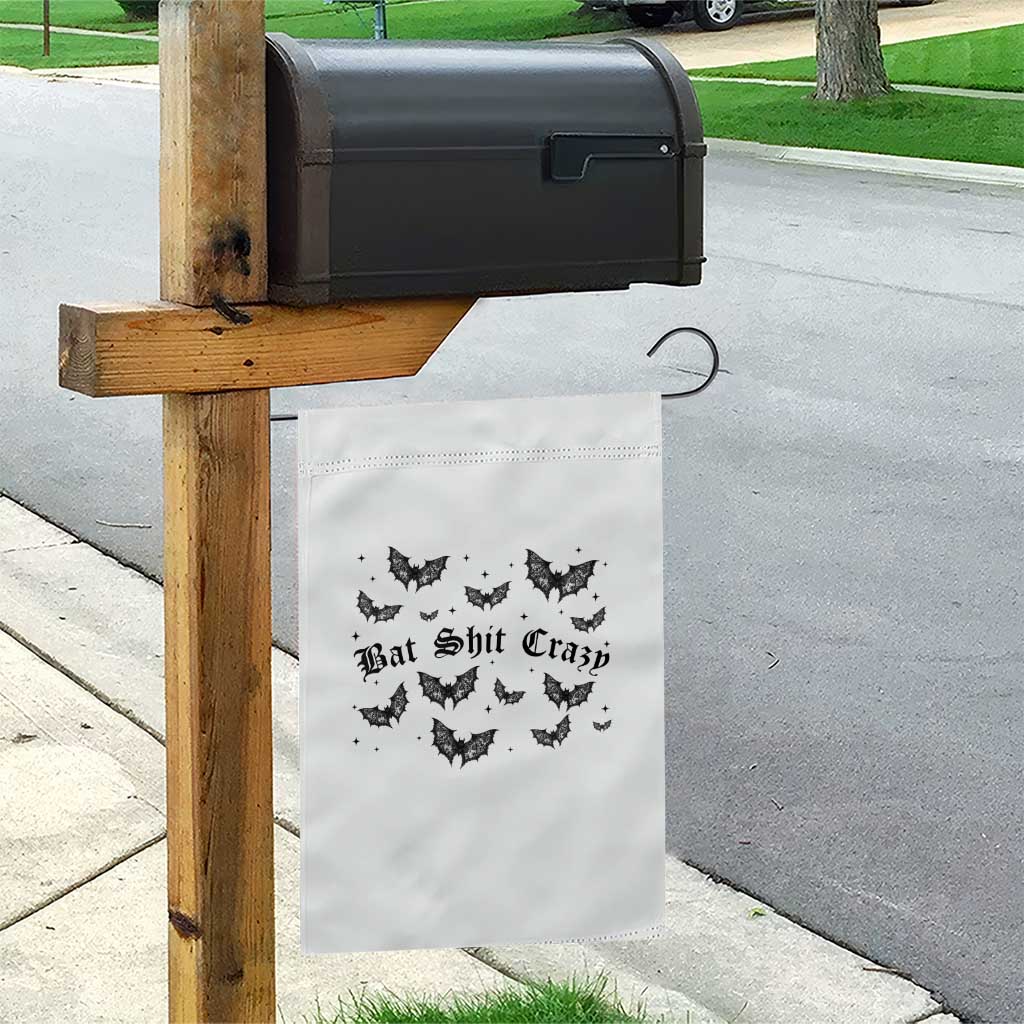 Bat Shit Crazy